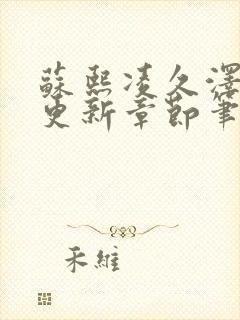 蘇熙凌久澤
更新章節筆
禾維